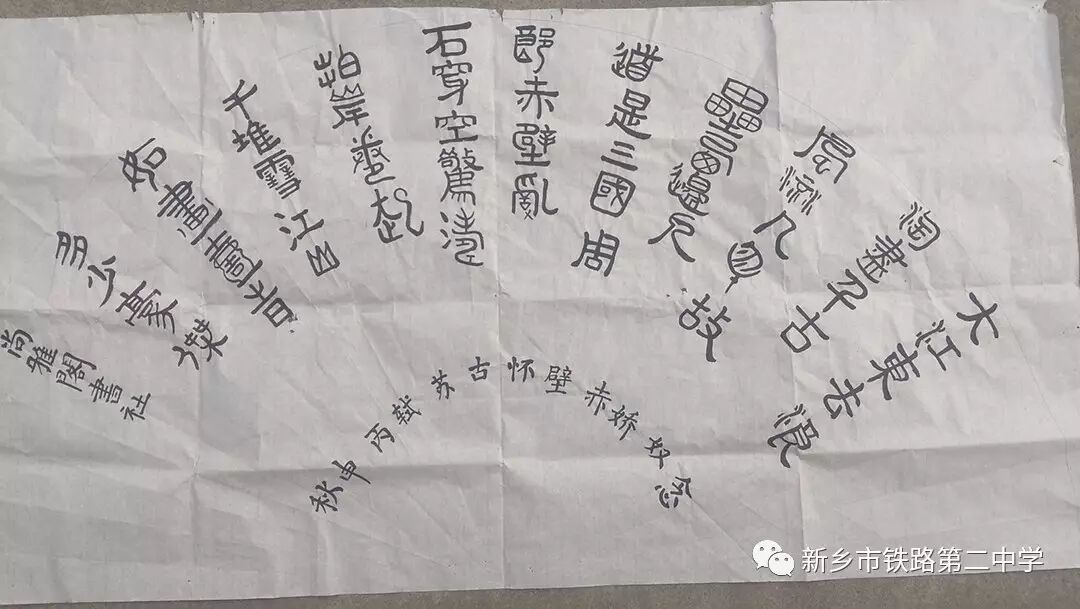 大江東去浪
淘盡千古
風流人物故
壘西邊人
道是三國周
郎赤壁亂
石穿空驚濤
拍岸卷起
千堆雪江山
如畫壹旹
多少豪傑
尚雅閣書社
念奴娇赤壁怀古苏轼丙申秋
新乡市铁路第二中学